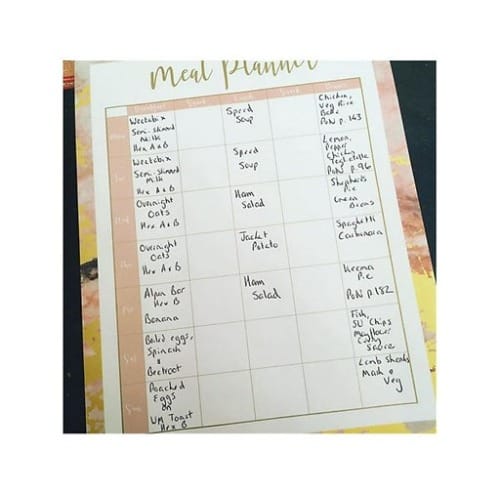 Meal Planner
Breakfast Snack Lunch Snack Dinner
Mon
Weetabix
Semi-Skimmed
Milk
Hex A+B
Speed
Soup
Chicken,
Veg Rice
Bake
PoN p.163
Tue
Weetabix
Semi-Skimmed
Milk
Hex A+B
Speed
Soup
Lemon,
Pepper
Chicken
Vegetable
PoN p.96
Wed
Overnight
Oats
Hex A+B
Ham
Salad
Shepherds
Pie
Green
Beans
Thu
Overnight
Oats
Hex A+B
Jacket
Potato
Spaghetti
Carbonara
Fri
Alpen Bar
Hex B
Banana
Ham
Salad
Keema
Pie
PoN p.182
Sat
Boiled eggs,
Spinach
+
Beetroot
Fish,
SW Chips
Mayflower
Curry
Sauce
Sun
Poached
Eggs
on
WM Toast
Hex B
Lamb Shanks
Mash +
Veg